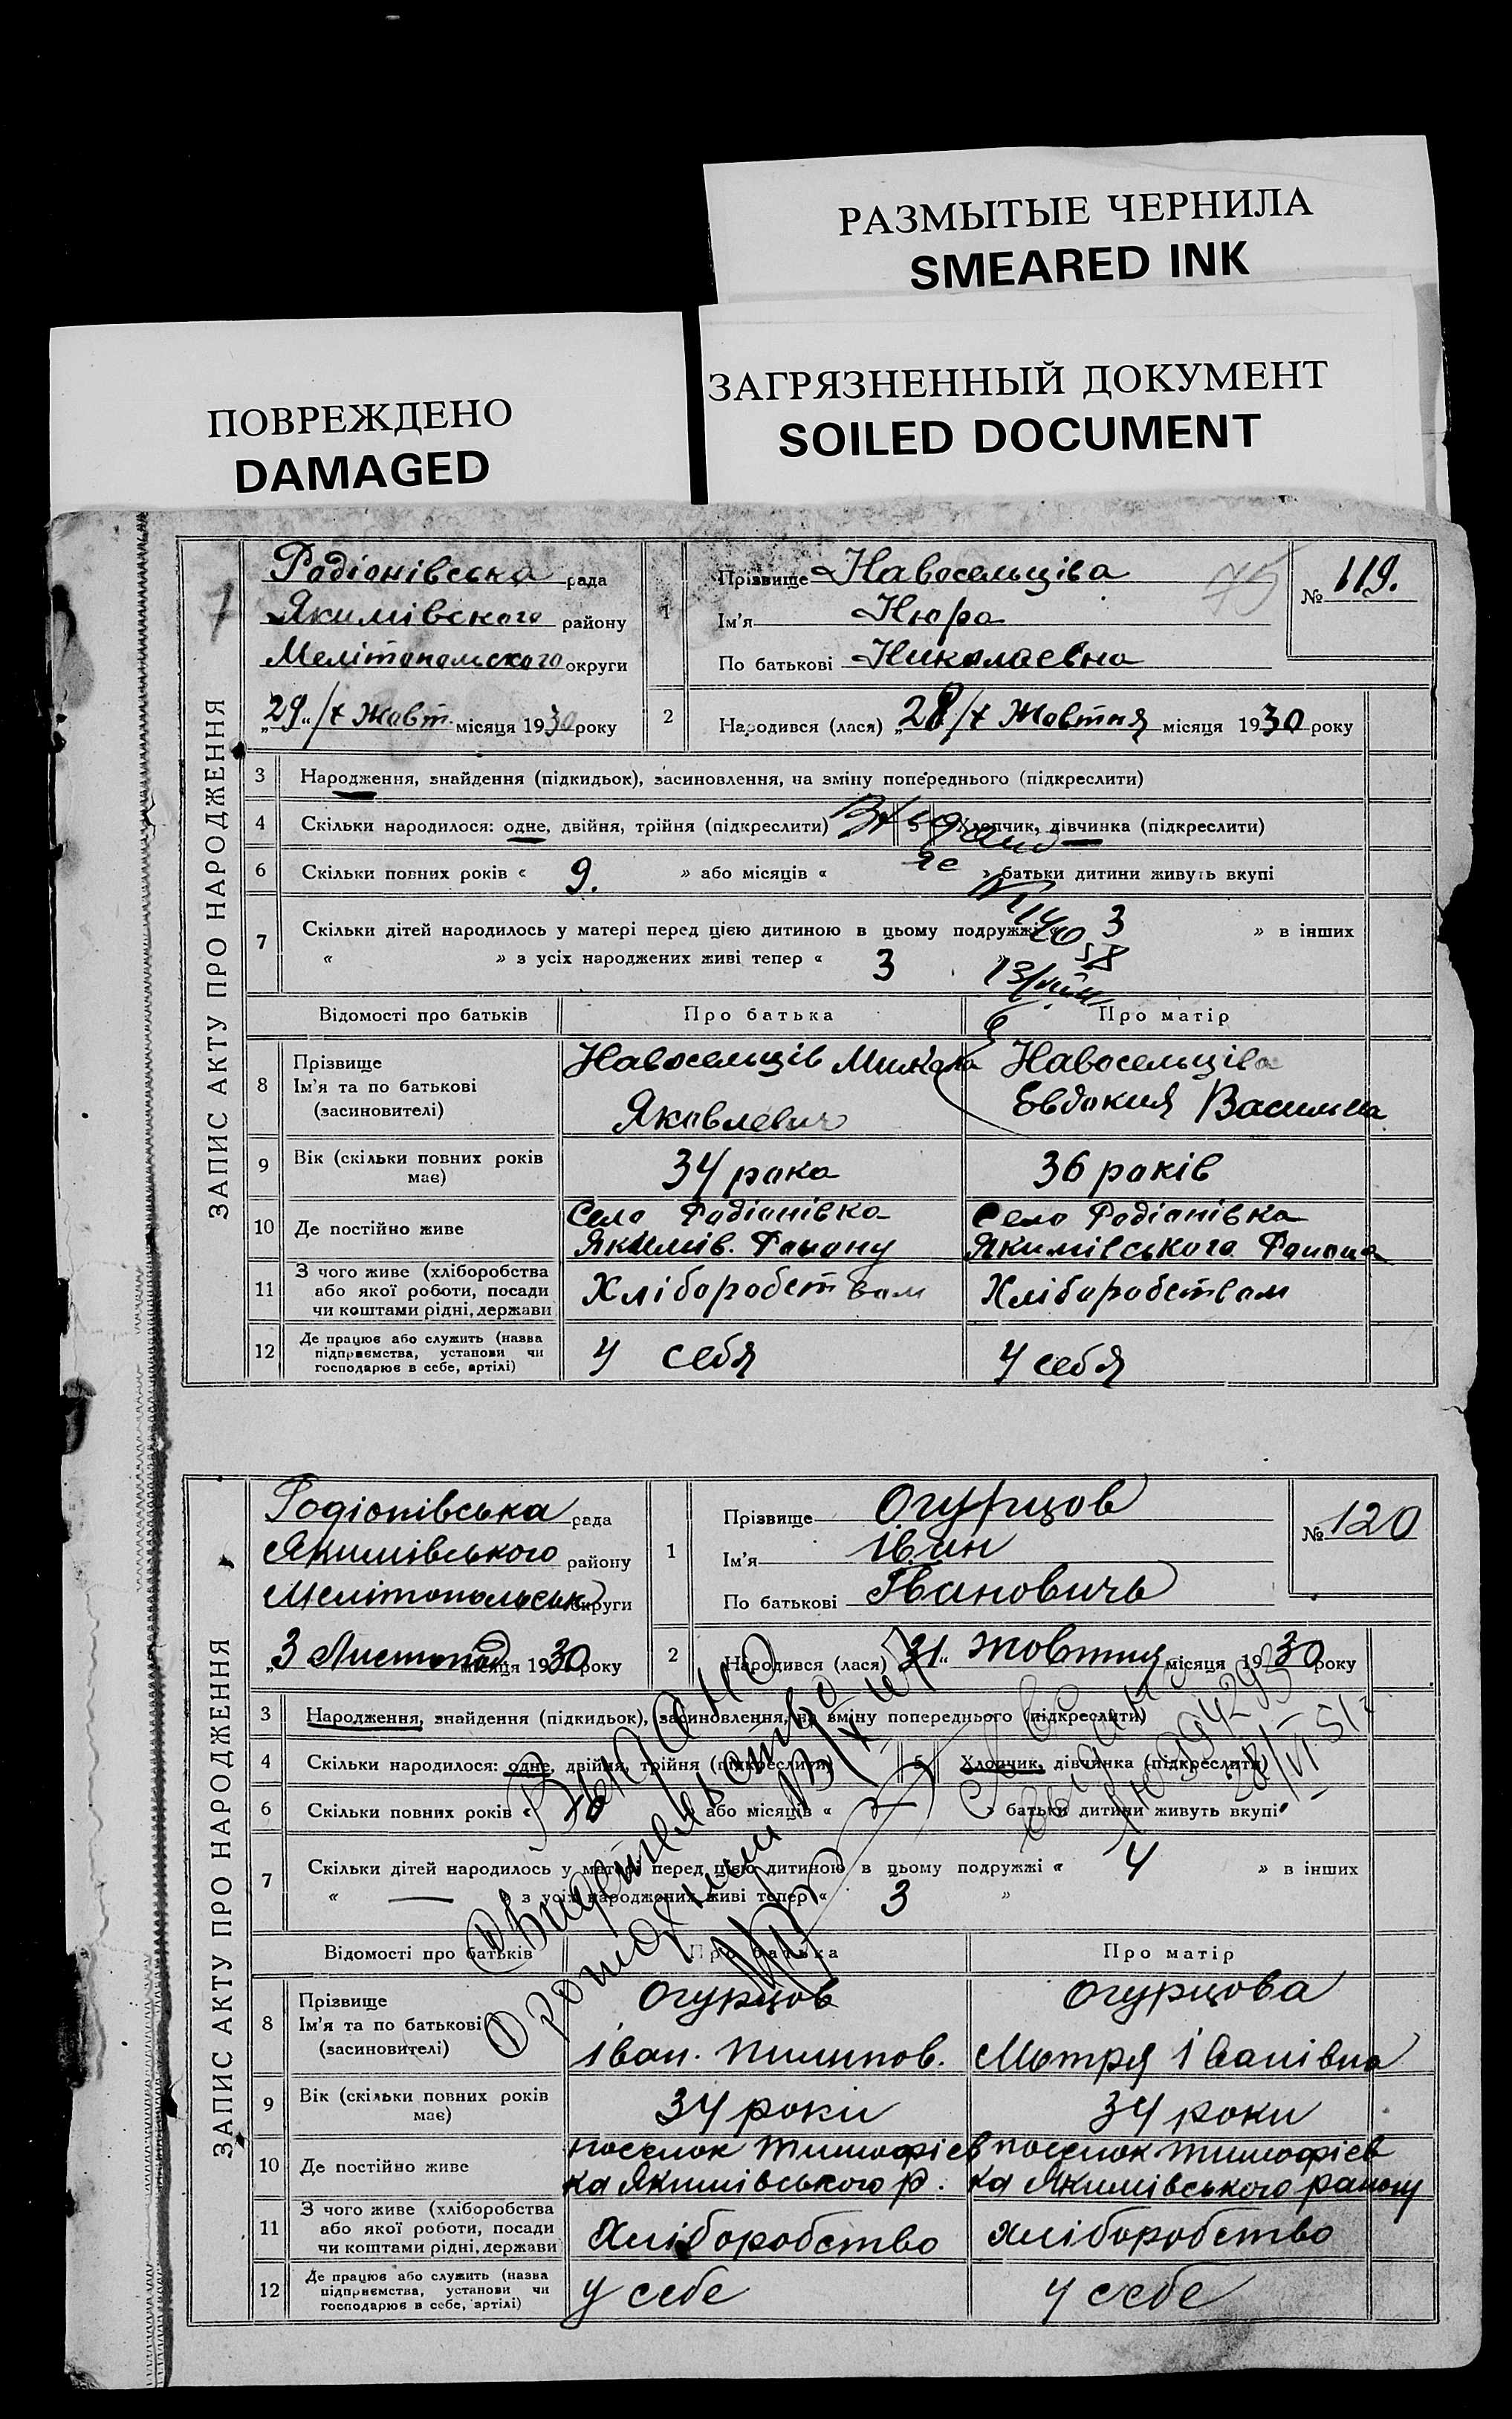 РАЗМЫТЫЕ ЧЕРНИЛА
SMEARED INK
ПОВРЕЖДЕНО
DAMAGED
ЗАГРЯЗНЕННЫЙ ДОКУМЕНТ
SOILED DOCUMENT
ЗАПИС АКТУ ПРО НАРОДЖЕННЯ
Радіонівська рада
Якимівского району
Мелітопольского округи
„29“/X Жовт. місяця 1930 року
1
Прізвище Навосельціва
Ім'я Нюра
По батькові Николаевна
75
№ 119.
2
Народився (лася) „28/X Жовтня місяця 1930 року
3 Народження, знайдення (підкидьок), засиновлення, на зміну попереднього (підкреслити)
4 Скільки народилося: одне, двійня, трійня (підкреслити) 5 Хлопчик, дівчинка (підкреслити)
6 Скільки повних років « 9. » або місяців « » батьки дитини живуть вкупі
7 Скільки дітей народилось у матері перед цією дитиною в цьому подружжі « 3 » в інших
« » з усіх народжених живі тепер « 3 »
Відомості про батьків Про батька Про матір
8 Прізвище
Ім'я та по батькові
(засиновителі)
Навосельців Микола
Яковлевич
Навосельціва
Евдокия Васильна
9 Вік (скільки повних років
має)
34 рока
36 років
10 Де постійно живе
Село Радіонівка
Якимів. Району
Село Радіонівка
Якимівського Району
11 З чого живе (хліборобства
або якої роботи, посади
чи коштами рідні, держави
Хліборобством
Хліборобством
12 Де працює або служить (назва
підприємства, установи чи
господарює в себе, артілі)
У себя
У себя
ЗАПИС АКТУ ПРО НАРОДЖЕННЯ
Родіонівська рада
Якимівського району
Мелітопольськ округи
„3 Листопад місяця 1930 року
1
Прізвище Огурцов
Ім'я Іван
По батькові Івановичь
№ 120
2
Народився (лася) „31“ Жовтня місяця 1930 року
3 Народження, знайдення (підкидьок), засиновлення, на зміну попереднього (підкреслити)
4 Скільки народилося: одне, двійня, трійня (підкреслити) 5 Хлопчик, дівчинка (підкреслити)
6 Скільки повних років « » або місяців « » батьки дитини живуть вкупі
7 Скільки дітей народилось у матері перед цією дитиною в цьому подружжі « 4 » в інших
« — » з усіх народжених живі тепер « 3 »
Выдано
Відомості про батьків Про батька Про матір
8 Прізвище
Ім'я та по батькові
(засиновителі)
Огурцов
Іван. Пилипов.
Огурцова
Мотря Іванівна
9 Вік (скільки повних років
має)
34 роки
34 роки
10 Де постійно живе
поселок Тимофієв
ка Якимівського р.
поселок Тимофієв
ка Якимівського району
11 З чого живе (хліборобства
або якої роботи, посади
чи коштами рідні, держави
Хліборобство
Хліборобство
12 Де працює або служить (назва
підприємства, установи чи
господарює в себе, артілі)
у себе
у себе